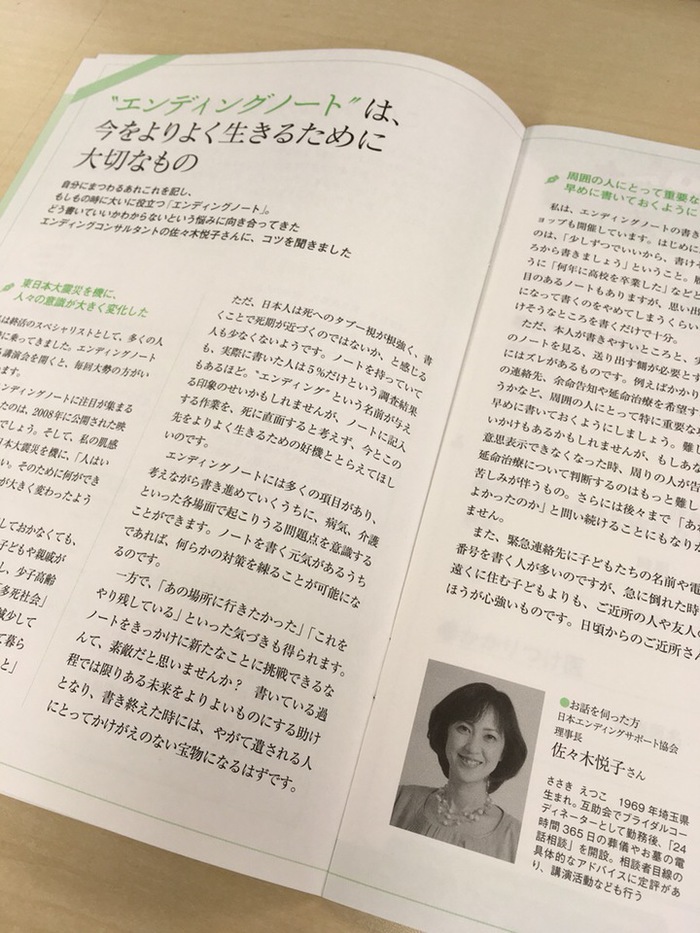 “エンディングノート”は、
今をよりよく生きるために
大切なもの
自分にまつわるあれこれを記し、
もしもの時に大いに役立つ「エンディングノート」。
どう書いていいかわからないという悩みに向き合ってきた
エンディングコンサルタントの佐々木悦子さんに、コツを聞きました
東日本大震災を機に、
人々の意識が大きく変化した
は終活のスペシャリストとして、多くの人
に乗ってきました。エンディングノート
講演会を開くと、毎回大勢の方がい
ます。
ンディングノートに注目が集まる
たのは、2008年に公開された映
でしょう。そして、私の肌感
日本大震災を機に、「人はい
い。そのために何ができ
が大きく変わったよう
しておかなくても、
子どもや親戚が
し、少子高齢
多死社会」
減少して
て暮ら
と」
ただ、日本人は死へのタブー視が根強く、書
くことで死期が近づくのではないか、と感じる
人も少なくないようです。ノートを持っていて
も、実際に書いた人は5%だけという調査結果
もあるほど。“エンディング”という名前が与え
る印象のせいかもしれませんが、ノートに記入
する作業を、死に直面すると考えず、今とこの
先をよりよく生きるための好機ととらえてほし
いのです。
エンディングノートには多くの項目があり、
考えながら書き進めていくうちに、病気、介護
といった各場面で起こりうる問題点を意識する
ことができます。ノートを書く元気があるうち
であれば、何らかの対策を練ることが可能にな
るのです。
一方で、「あの場所に行きたかった」「これを
やり残している」といった気づきも得られます。
ノートをきっかけに新たなことに挑戦できるな
んて、素敵だと思いませんか？ 書いている過
程では限りある未来をよりよいものにする助け
となり、書き終えた時には、やがて遺される人
にとってかけがえのない宝物になるはずです。
周囲の人にとって重要な
早めに書いておくように
私は、エンディングノートの書き
ョップも開催しています。はじめに
のは、「少しずつでいいから、書けそ
ろから書きましょう」ということ。
うに「何年に高校を卒業した」などと
目のあるノートもありますが、思い出
になって書くのをやめてしまうくらい
けそうなところを書くだけで十分。
ただ、本人が書きやすいところと、実
のノートを見る、送り出す側が必要とす
にはズレがあるものです。例えばかかり
の連絡先、余命告知や延命治療を希望す
うかなど、周囲の人にとって特に重要な
早めに書いておくようにしましょう。難し
いかけもあるかもしれませんが、もしあな
意思表示できなくなった時、周りの人が告
延命治療について判断するのはもっと難し
苦しみが伴うもの。さらには後々まで「あ
よかったのか」と問い続けることにもなりか
ません。
また、緊急連絡先に子どもたちの名前や電
番号を書く人が多いのですが、急に倒れた時
遠くに住む子どもよりも、ご近所の人や友人の
ほうが心強いものです。日頃からのご近所さん
●お話を伺った方
日本エンディングサポート協会
理事長
佐々木悦子さん
ささき えつこ 1969年埼玉県
生まれ。互助会でブライダルコー
ディネーターとして勤務後、「24
時間365日の葬儀やお墓の電
話相談」を開設。相談者目線の
具体的なアドバイスに定評があ
り、講演活動なども行う